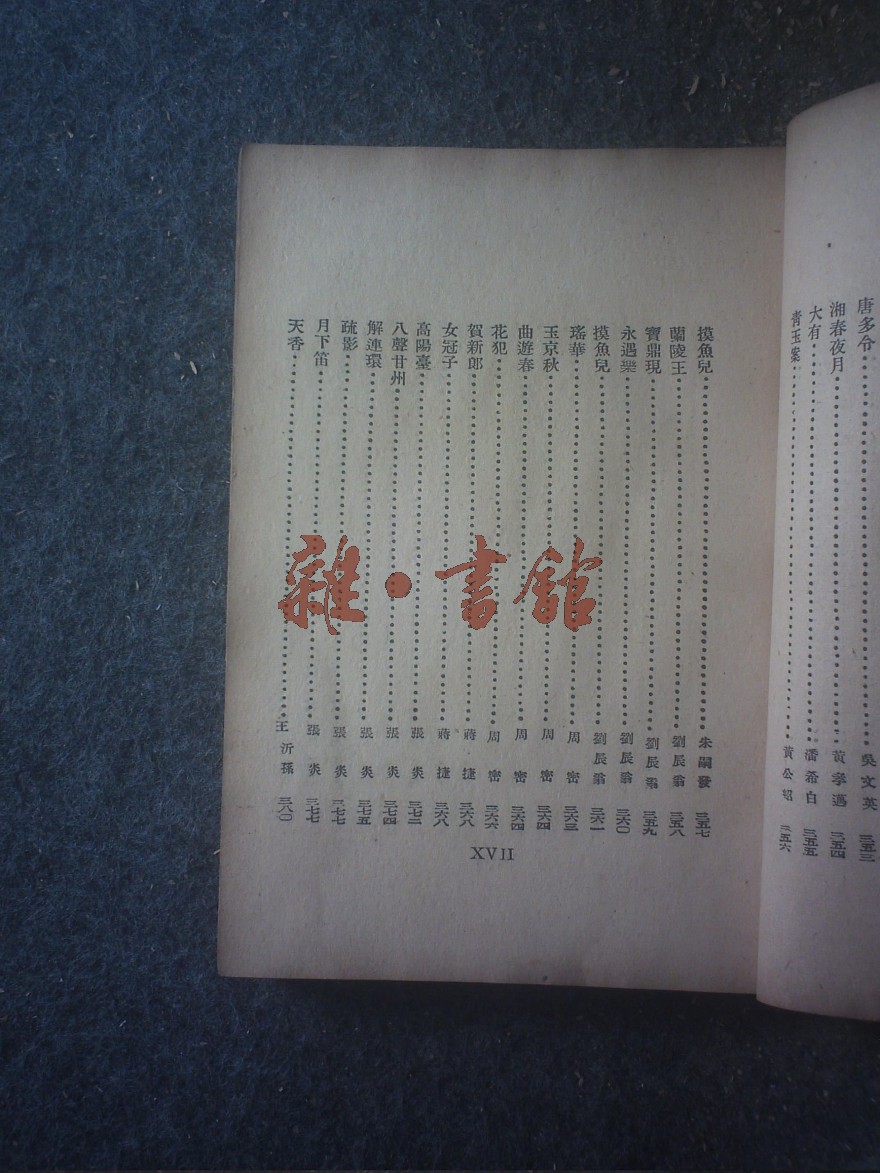 唐多令 吳文英 三五三
湘春夜月 黃孝邁 三五四
大有 潘希白 三五五
青玉案 黃公紹 三五六
摸魚兒 朱嗣發 三五七
蘭陵王 劉辰翁 三五八
寶鼎現 劉辰翁 三五九
永遇樂 劉辰翁 三六〇
摸魚兒 劉辰翁 三六一
瑤華 周密 三六三
玉京秋 周密 三六四
曲遊春 周密 三六四
花犯 周密 三六六
賀新郎 蔣捷 三六八
女冠子 蔣捷 三六八
高陽臺 張炎 三七三
八聲甘州 張炎 三七四
解連環 張炎 三七五
疏影 張炎 三七七
月下笛 張炎 三七七
天香 王沂孫 三八〇
XVII
雜·書館